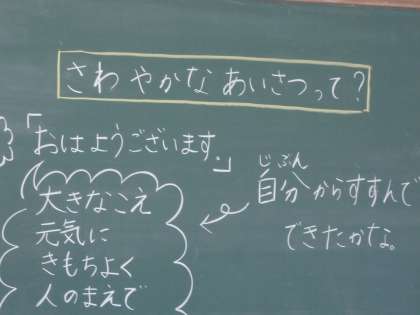 さわやかなあいさつって？
「おはようございます。」
大きなこえ
元気に
きもちよく
人のまえで
じぶん
自分からすすんで
できたかな。